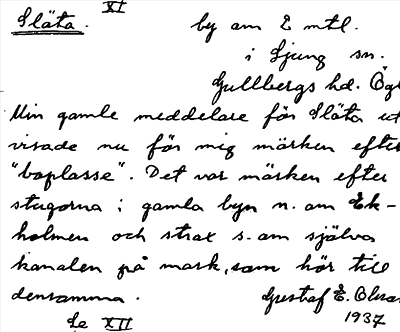 XI
Släta. by om 2 mtl.
i Ljung sn.
Gullbergs hd. Ögl
Min gamle meddelare för Släta ut
visade nu för mig märken efter
"boplasse". Det var märken efter
stugorna i gamla byn n. om Ek-
holmen och strax s. om själva
kanalen på mark, som hör till
densamma. Gustaf E. Olsso
Se XII 1937